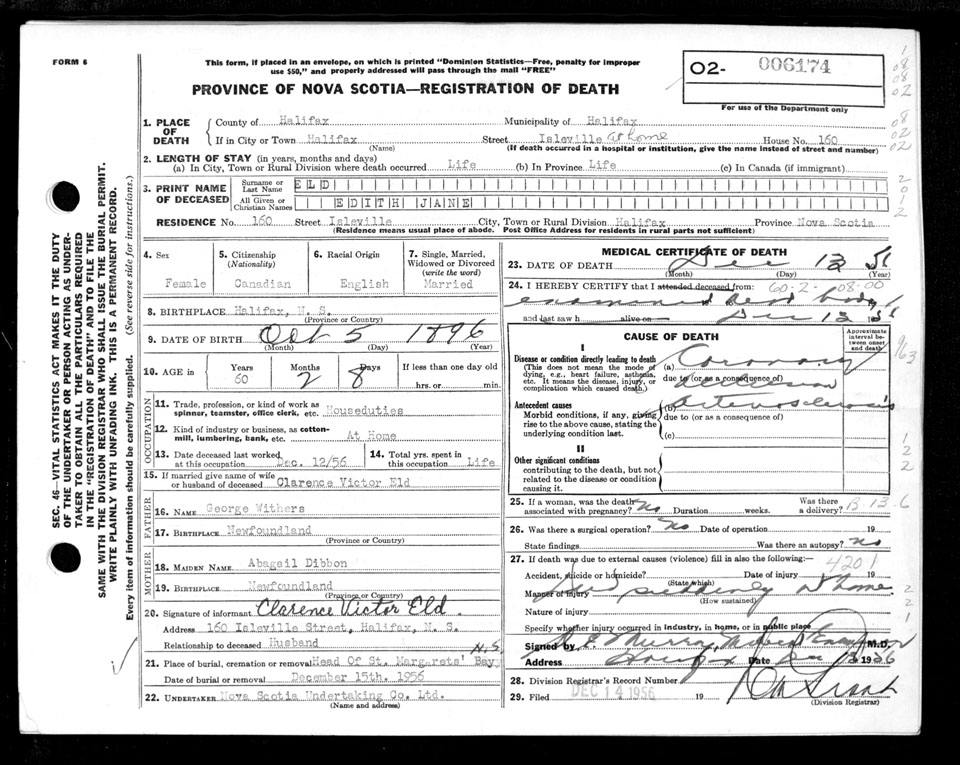 FORM 6
This form, if placed in an envelope, on which is printed "Dominion Statistics—Free, penalty for improper
use $50," and properly addressed will pass through the mail "FREE"
PROVINCE OF NOVA SCOTIA—REGISTRATION OF DEATH
O2- 006174
For use of the Department only
1. PLACE OF DEATH
County of Halifax Municipality of Halifax
If in City or Town Halifax Street Isleville at home House No. 160
(Name) (If death occurred in a hospital or institution, give the name instead of street and number)
2. LENGTH OF STAY (in years, months and days)
(a) In City, Town or Rural Division where death occurred Life (b) In Province Life (c) In Canada (if immigrant)
3. PRINT NAME OF DECEASED
Surname or Last Name ELD
All Given or Christian Names EDITH JANE
RESIDENCE No. 160 Street Isleville City, Town or Rural Division Halifax Province Nova Scotia
(Residence means usual place of abode. Post Office Address for residents in rural parts not sufficient)
4. Sex
Female
5. Citizenship
(Nationality)
Canadian
6. Racial Origin
English
7. Single, Married,
Widowed or Divorced
(write the word)
Married
8. BIRTHPLACE Halifax, N. S.
(Province or Country)
9. DATE OF BIRTH Oct 5 1896
(Month) (Day) (Year)
10. AGE in
Years Months Days If less than one day old
60 2 8 hrs. or min.
OCCUPATION
11. Trade, profession, or kind of work as
spinner, teamster, office clerk, etc. Houseduties
12. Kind of industry or business, as cotton-
mill, lumbering, bank, etc. At Home
13. Date deceased last worked
at this occupation Dec. 12/56
14. Total yrs. spent in
this occupation Life
15. If married give name of wife
or husband of deceased Clarence Victor Eld
FATHER
16. NAME George Withers
17. BIRTHPLACE Newfoundland
(Province or Country)
MOTHER
18. MAIDEN NAME Abagail Dibbon
19. BIRTHPLACE Newfoundland
(Province or Country)
20. Signature of informant Clarence Victor Eld.
Address 160 Isleville Street, Halifax, N. S.
Relationship to deceased Husband
N.S.
21. Place of burial, cremation or removal Head Of St. Margarets' Bay,
Date of burial or removal December 15th. 1956
22. UNDERTAKER Nova Scotia Undertaking Co. Ltd.
(Name and address)
MEDICAL CERTIFICATE OF DEATH
23. DATE OF DEATH Dec 13 56
(Month) (Day) (Year)
24. I HEREBY CERTIFY that I attended deceased from: 60-2-08-00
examined dead body
and last saw h alive on Dec 13 1956
CAUSE OF DEATH
Approximate
interval between
onset and death
I
Disease or condition directly leading to death
(This does not mean the mode of
dying, e.g., heart failure, asthenia,
etc. It means the disease, injury, or
complication which caused death.)
(a) Coronary
due to (or as a consequence of)
occlusion
Antecedent causes
Morbid conditions, if any, giving
rise to the above cause, stating the
underlying condition last.
(b) Arteriosclerosis
due to (or as a consequence of)
(c)
II
Other significant conditions
contributing to the death, but not
related to the disease or condition
causing it.
25. If a woman, was the death
associated with pregnancy? No Duration weeks. Was there
a delivery? B-13-6
26. Was there a surgical operation? No Date of operation 19
State findings Was there an autopsy? No
27. If death was due to external causes (violence) fill in also the following:— 4201
Accident, suicide or homicide? Date of injury 19
(State which)
Manner of injury Died suddenly at home.
(How sustained)
Nature of injury
Specify whether injury occurred in industry, in home, or in public place
Signed by M.D.
Address Halifax Date Dec 13 1956
28. Division Registrar's Record Number
29. Filed DEC 14 1956 19
(Division Registrar)
SEC. 46—VITAL STATISTICS ACT MAKES IT THE DUTY
OF THE UNDERTAKER OR PERSON ACTING AS UNDER-
TAKER TO OBTAIN ALL THE PARTICULARS REQUIRED
IN THE "REGISTRATION OF DEATH" AND TO FILE THE
SAME WITH THE DIVISION REGISTRAR WHO SHALL ISSUE THE BURIAL PERMIT.
WRITE PLAINLY WITH UNFADING INK. THIS IS A PERMANENT RECORD.
Every item of information should be carefully supplied. (See reverse side for instructions.)